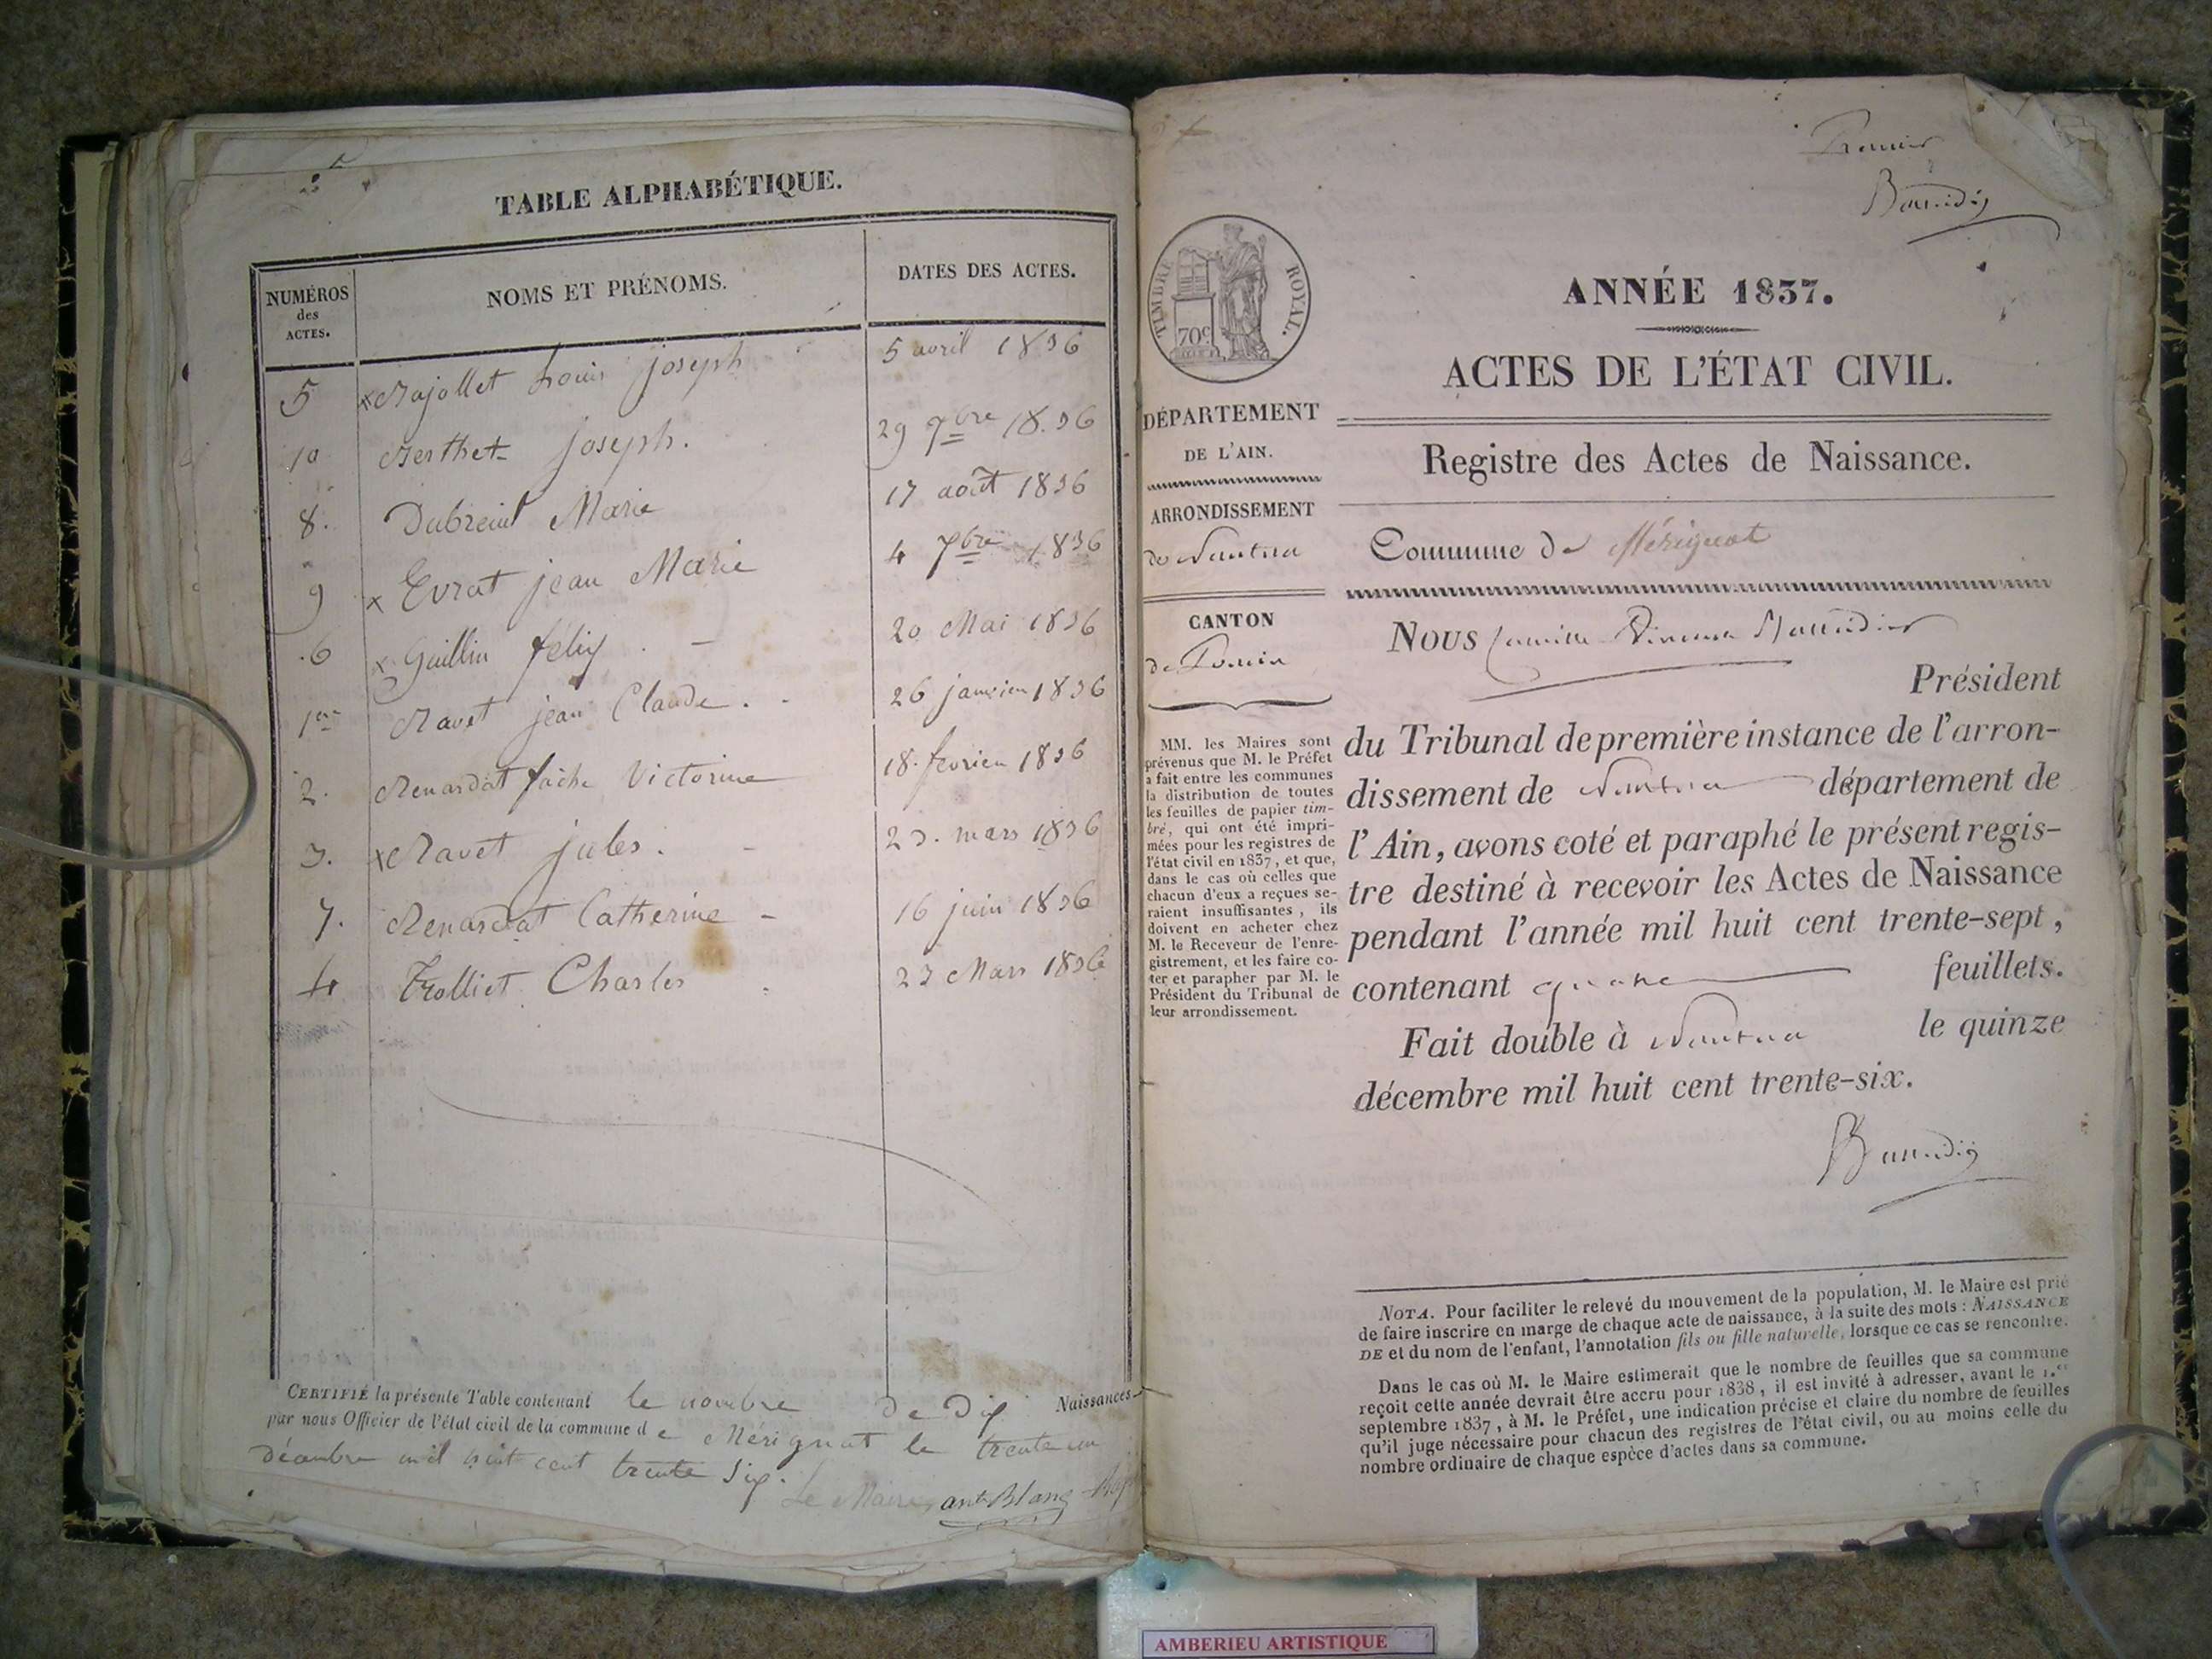 TABLE ALPHABÉTIQUE.
NUMÉROS
des
ACTES.
NOMS ET PRÉNOMS.
DATES DES ACTES.
5 Louis joseph 5 avril 1836
10 Berthet joseph. 29 7bre 1836
8. Dubreuil Marie 17 août 1836
9 x Evrat jean Marie 4 7bre 1836
.6 x Guillin félix 20 Mai 1836
1er Ravet jean Claude 26 janvier 1836
2. Renardat fache Victorine 18 fevrier 1836
3. x Ravet jules. 23. mars 1836
7. Renardat Catherine 16 juin 1836
4 Trolliet Charles Mars 1836
CERTIFIÉ la présente Table contenant le nombre de dix Naissances
par nous Officier de l'état civil de la commune de Mérignat le trente un
décembre mil huit cent trente Six.
Le Maire
TIMBRE ROYAL.
70c
ANNÉE 1837.
ACTES DE L'ÉTAT CIVIL.
DÉPARTEMENT
DE L'AIN.
Registre des Actes de Naissance.
ARRONDISSEMENT
de Nantua
Commune de Mérignat
CANTON
de Poncin
Nous
Président
du Tribunal de première instance de l'arron-
dissement de Nantua département de
l'Ain, avons coté et paraphé le présent regis-
tre destiné à recevoir les Actes de Naissance
pendant l'année mil huit cent trente-sept,
contenant feuillets.
Fait double à Nantua le quinze
décembre mil huit cent trente-six.
MM. les Maires sont
prévenus que M. le Préfet
a fait entre les communes
la distribution de toutes
les feuilles de papier tim-
bré, qui ont été impri-
mées pour les registres de
l'état civil en 1837, et que,
dans le cas où celles que
chacun d'eux a reçues se-
raient insuffisantes, ils
doivent en acheter chez
M. le Receveur de l'enre-
gistrement, et les faire co-
ter et parapher par M. le
Président du Tribunal de
leur arrondissement.
NOTA. Pour faciliter le relevé du mouvement de la population, M. le Maire est prié
de faire inscrire en marge de chaque acte de naissance, à la suite des mots : NAISSANCE
DE et du nom de l'enfant, l'annotation fils ou fille naturelle, lorsque ce cas se rencontre.
Dans le cas où M. le Maire estimerait que le nombre de feuilles que sa commune
reçoit cette année devrait être accru pour 1838, il est invité à adresser, avant le 1.er
septembre 1837, à M. le Préfet, une indication précise et claire du nombre de feuilles
qu'il juge nécessaire pour chacun des registres de l'état civil, ou au moins celle du
nombre ordinaire de chaque espèce d'actes dans sa commune.
AMBERIEU ARTISTIQUE